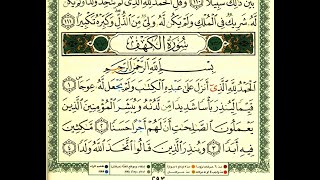 بَيْنَ ذَٰلِكَ سَبِيلًا ۝ وَقُلِ الْحَمْدُ لِلَّهِ الَّذِي لَمْ يَتَّخِذْ وَلَدًا وَلَمْ يَكُن
لَّهُ شَرِيكٌ فِي الْمُلْكِ وَلَمْ يَكُن لَّهُ وَلِيٌّ مِّنَ الذُّلِّ وَكَبِّرْهُ تَكْبِيرًا ۝١١١
سُورَةُ الْكَهْفِ
بِسْمِ اللَّهِ الرَّحْمَٰنِ الرَّحِيمِ
الْحَمْدُ لِلَّهِ الَّذِي أَنزَلَ عَلَىٰ عَبْدِهِ الْكِتَابَ وَلَمْ يَجْعَل لَّهُ عِوَجًا ۝١
قَيِّمًا لِّيُنذِرَ بَأْسًا شَدِيدًا مِّن لَّدُنْهُ وَيُبَشِّرَ الْمُؤْمِنِينَ الَّذِينَ
يَعْمَلُونَ الصَّالِحَاتِ أَنَّ لَهُمْ أَجْرًا حَسَنًا ۝٢ مَّاكِثِينَ
فِيهِ أَبَدًا ۝٣ وَيُنذِرَ الَّذِينَ قَالُوا اتَّخَذَ اللَّهُ وَلَدًا ۝٤
٢٩٣